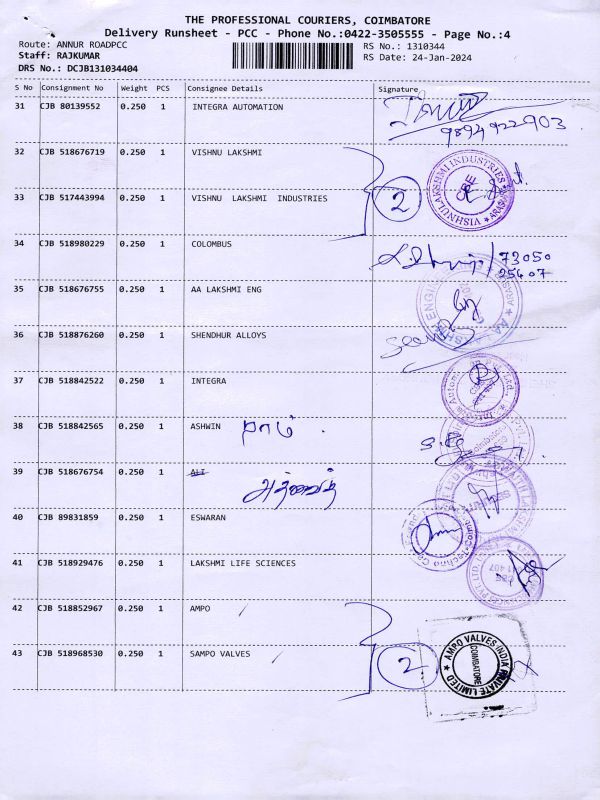 THE PROFESSIONAL COURIERS, COIMBATORE
Delivery Runsheet - PCC - Phone No.:0422-3505555 - Page No.:4
Route: ANNUR ROADPCC
RS No.: 1310344
Staff: RAJKUMAR
RS Date: 24-Jan-2024
DRS No.: DCJB131034404
S No Consignment No Weight PCS Consignee Details Signature
31 CJB 80139552 0.250 1 INTEGRA AUTOMATION
9894922903
32 CJB 518676719 0.250 1 VISHNU LAKSHMI
VISHNULAKSHMI INDUSTRIES
33 CJB 517443994 0.250 1 VISHNU LAKSHMI INDUSTRIES
2
34 CJB 518980229 0.250 1 COLOMBUS
73050
25407
35 CJB 518676755 0.250 1 AA LAKSHMI ENG
AA LAKSHMI ENGI
36 CJB 518876260 0.250 1 SHENDHUR ALLOYS
37 CJB 518842522 0.250 1 INTEGRA
38 CJB 518842565 0.250 1 ASHWIN
39 CJB 518676754 0.250 1 ALI
40 CJB 89831859 0.250 1 ESWARAN
41 CJB 518929476 0.250 1 LAKSHMI LIFE SCIENCES
42 CJB 518852967 0.250 1 AMPO
43 CJB 518968530 0.250 1 SAMPO VALVES
2
AMPO VALVES INDIA PRIVATE LIMITED
COIMBATORE